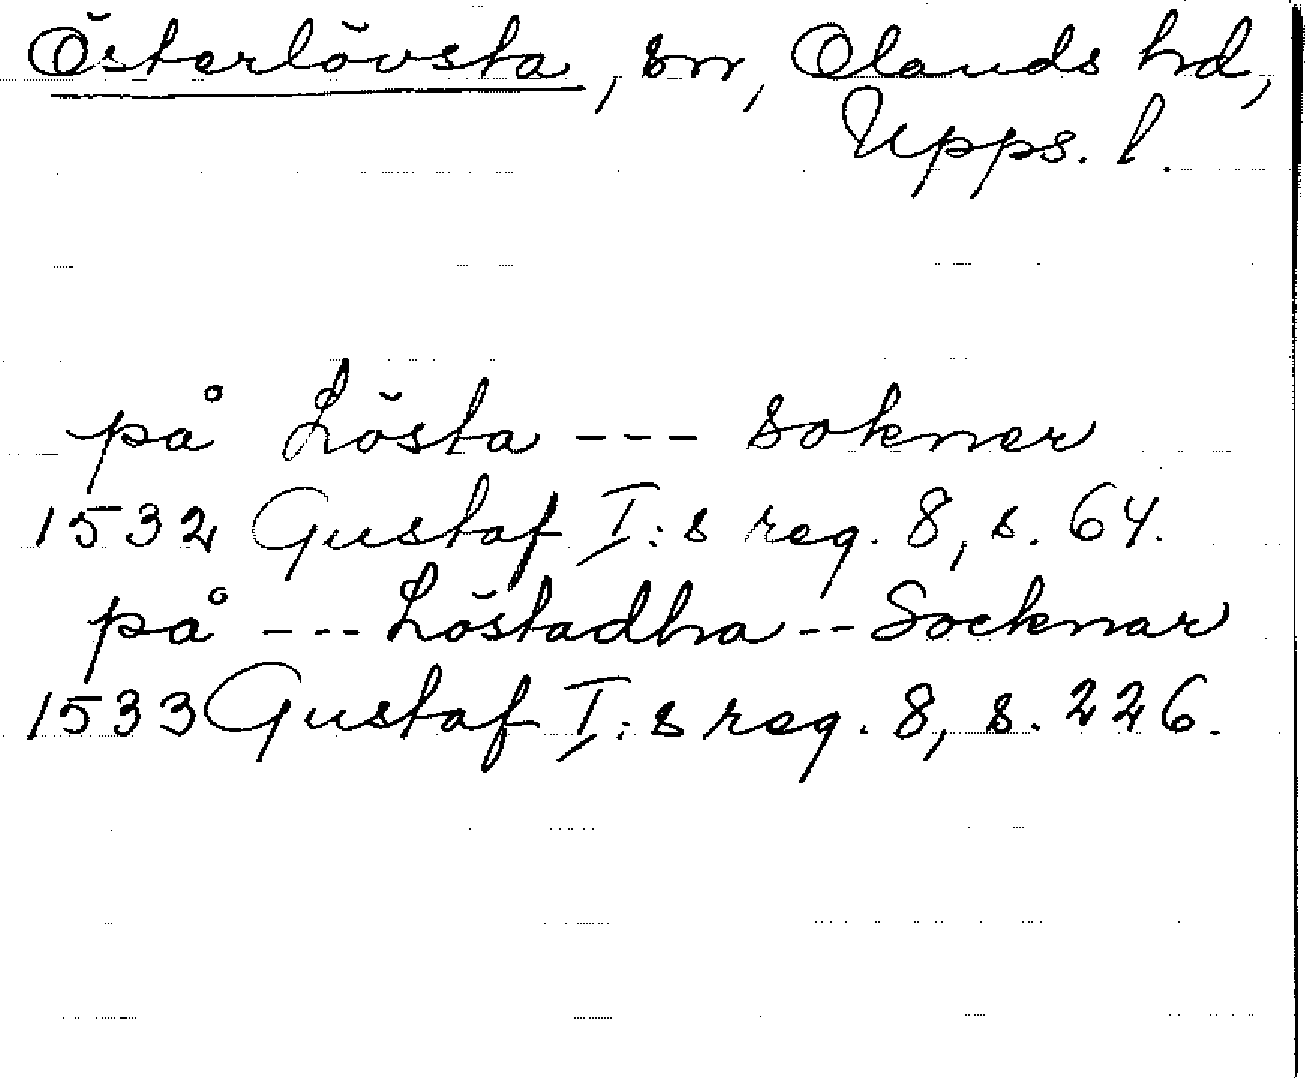 Österlövsta, sn, Olands hd,
Upps. l.
på Lösta --- sokner
1532 Gustaf I:s reg. 8, s. 64.
på --- Löstadha -- Socknar
1533 Gustaf I:s reg. 8, s. 226.